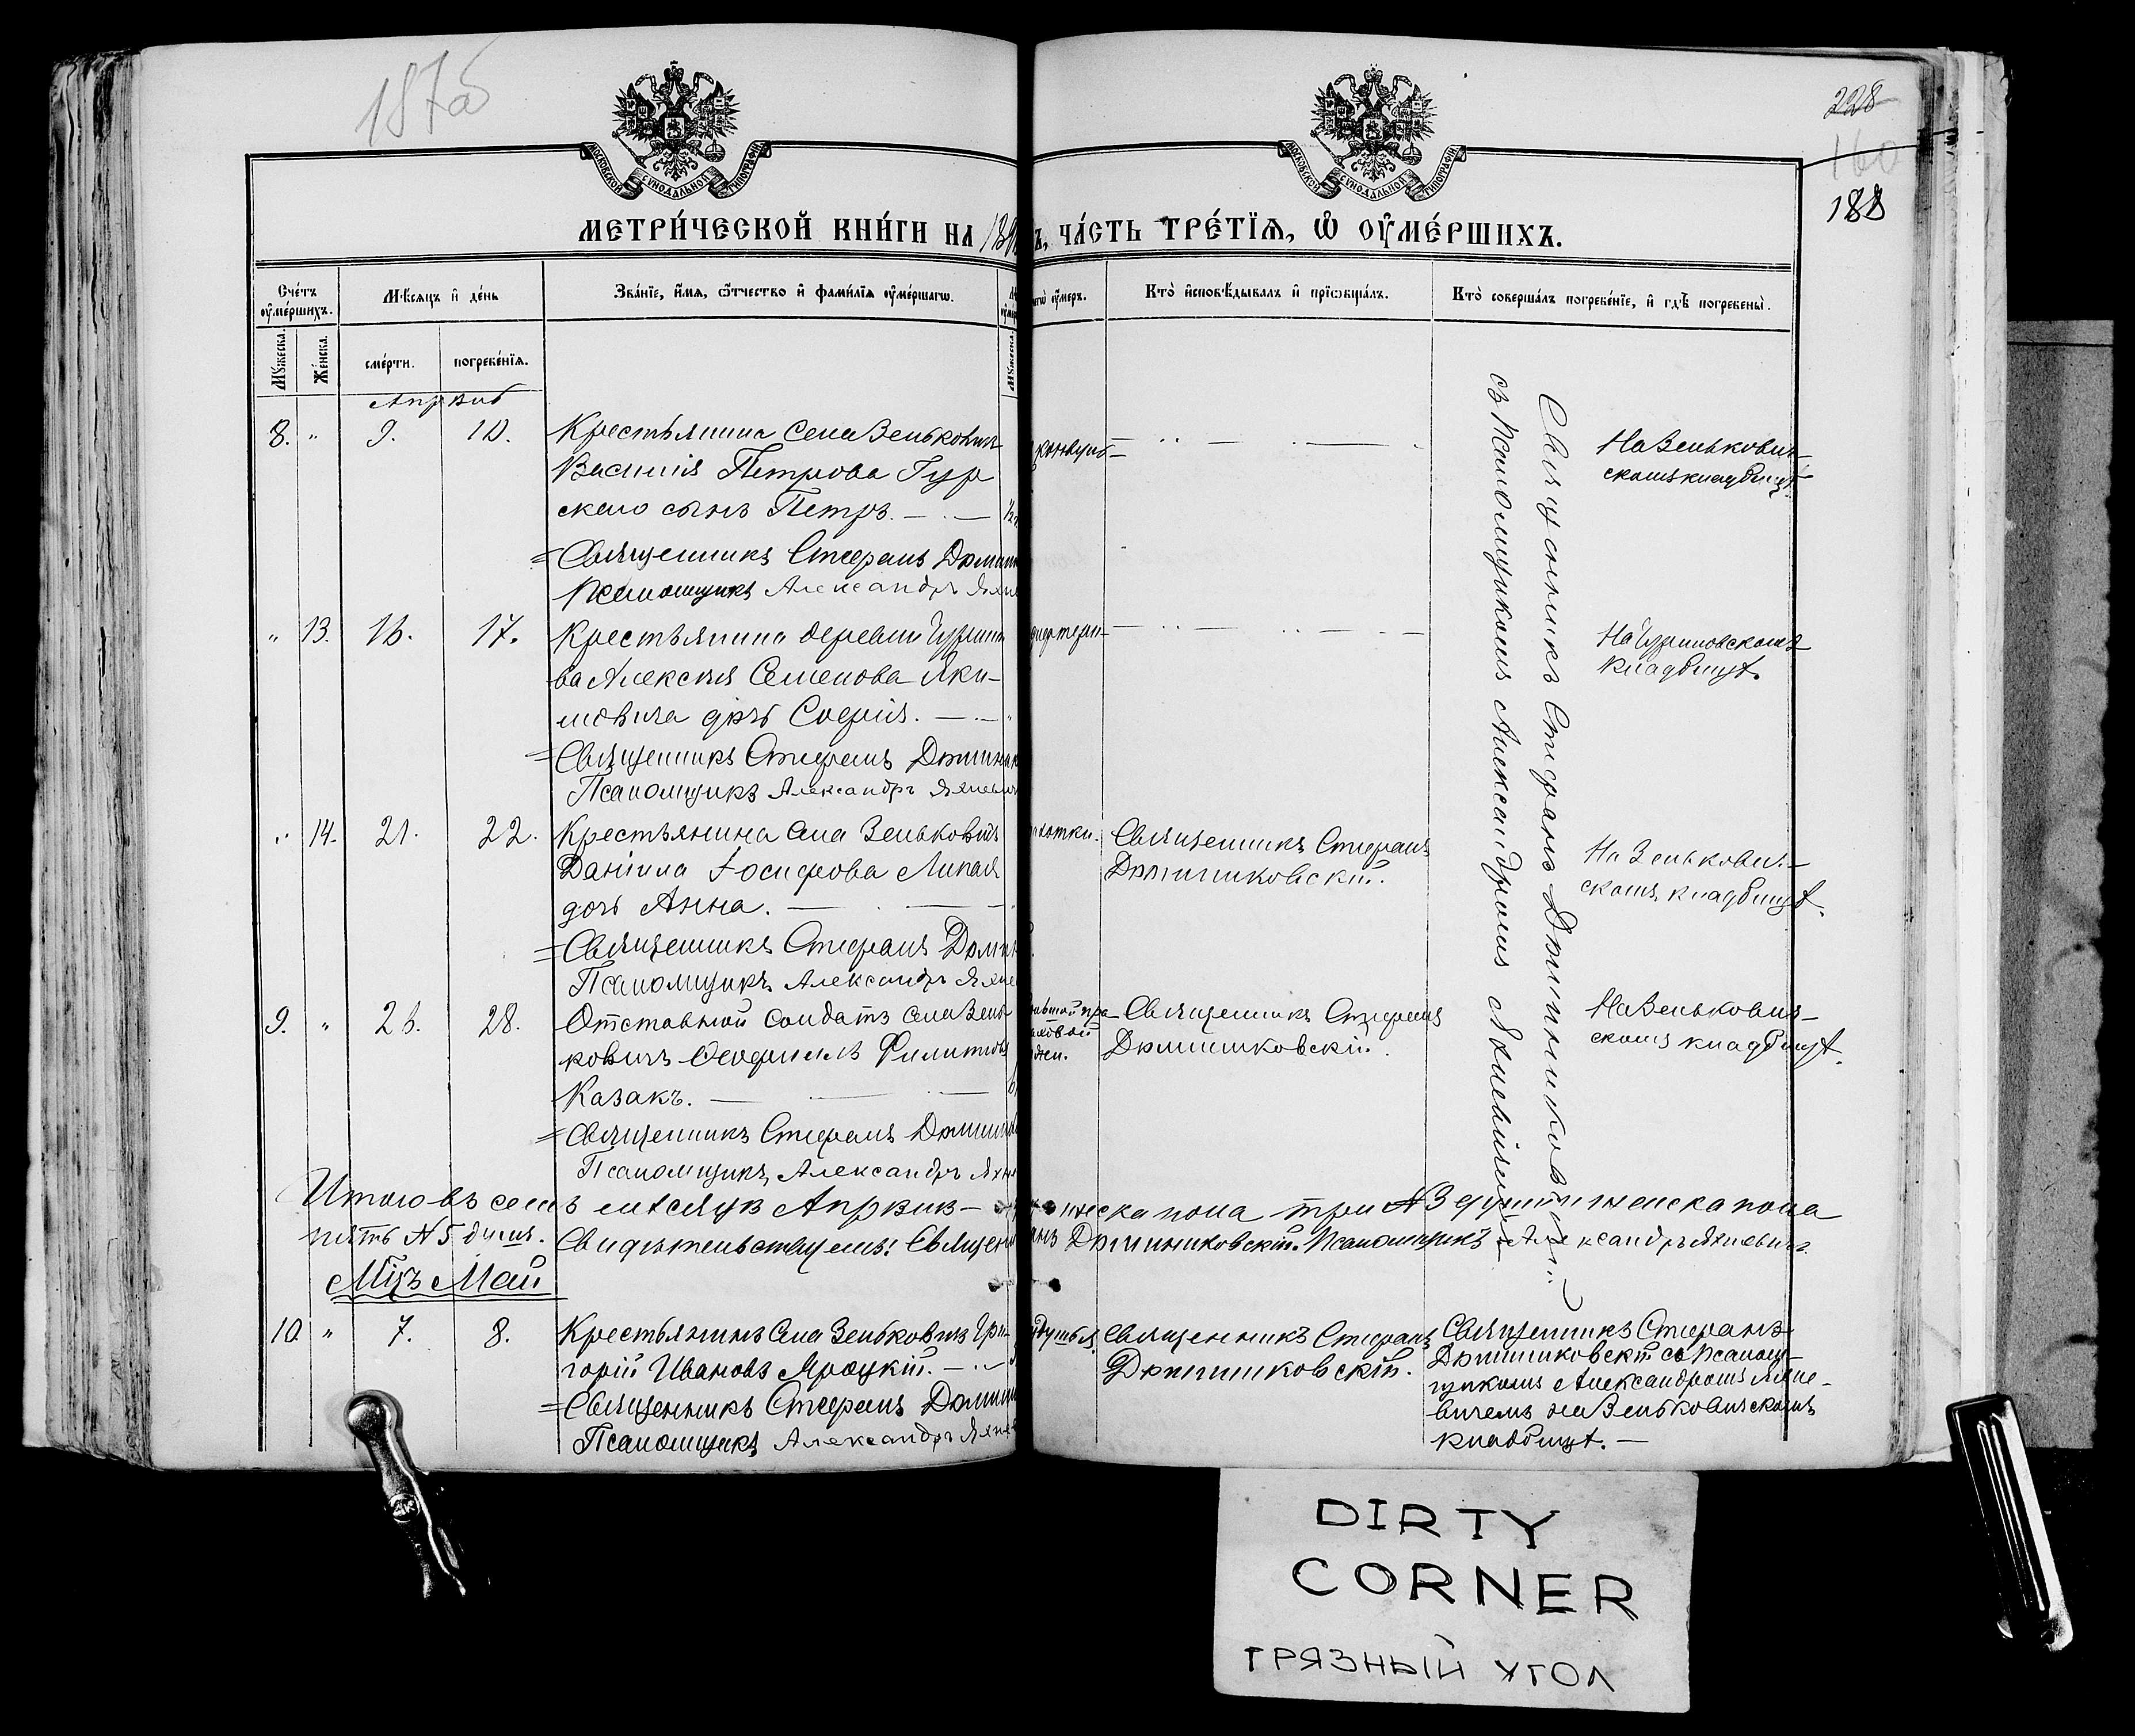 187об
228
160
188
МОСКОВСКОЙ СѴНОДАЛЬНОЙ ТИПОГРАФІИ
МОСКОВСКОЙ СѴНОДАЛЬНОЙ ТИПОГРАФІИ
МЕТРИ́ЧЕСКОЙ КНИ́ГИ НА 189
Ъ, ЧА́СТЬ ТРЕ́ТЇѦ, Ѡ ОУ҆МЕ́РШИХЪ.
Сче́тъ оу҆ме́ршихъ.
Мѣсяцъ и де́нь
Зва́нїе, и҆́мя, ѻ҆́тчество и҆ фами́лїя оу҆ме́ршагѡ.
чегѡ оу҆́меръ.
Кто̀ и҆сповѣ́дывалъ и҆ прїѡбща́лъ.
Кто̀ соверша́лъ погребе́нїе, и҆ гдѣ̀ погребены̀.
Мꙋ́жеска.
Же́нска.
сме́рти.
погребе́нїя.
Мꙋ́жеска.
Апрѣль
8. " 9. 10. Крестьянина села Зеньковичъ
Василія Петрова Гур
скаго сынъ Петръ. — · —
=Священникъ Стефанъ
Псаломщикъ Александръ
На Зенькович-
скомъ кладбищѣ.
" 13. 16. 17. Крестьянина деревни
ва Алексѣя Семенова Яки-
мовича дочь Софія. — · —
=Священникъ Стефанъ
Псаломщикъ Александръ Яхневич
кладбищѣ.
" 14. 21. 22. Крестьянина села Зеньковичъ
Даніила Іосифова
дочь Анна. — · —
=Священникъ Стефанъ
Псаломщикъ Александръ Яхне
Священникъ Стефанъ
На Зенькович-
скомъ кладбищѣ.
9. " 26. 28. Отставной солдатъ села Зень
ковичъ Филипповъ
Казакъ. — · —
=Священникъ Стефанъ
Псаломщикъ Александръ Яхн
Священникъ Стефанъ
На Зенькович-
скомъ кладбищѣ.
Священникъ Стефанъ
съ Псаломщикомъ Александромъ Яхневичемъ
Итого въ семъ мѣсяцѣ Апрѣлѣ —
жеска пола три №3 души и женска пола
пять №5 душъ. Свидѣтельствуемъ: Священ
Псаломщикъ Александръ Яхневичъ
Мцъ Май
10 " 7. 8. Крестьянинъ села Зеньковичъ Гри-
горій Ивановъ Яроцкій. — · —
=Священникъ Стефанъ
Псаломщикъ Александръ Яхне
Священникъ Стефанъ
Священникъ Стефанъ
съ Псалом-
щикомъ Александромъ Яхне-
вичемъ на Зеньковичскомъ
кладбищѣ. —
DIRTY
CORNER
ГРЯЗНЫЙ УГОЛ